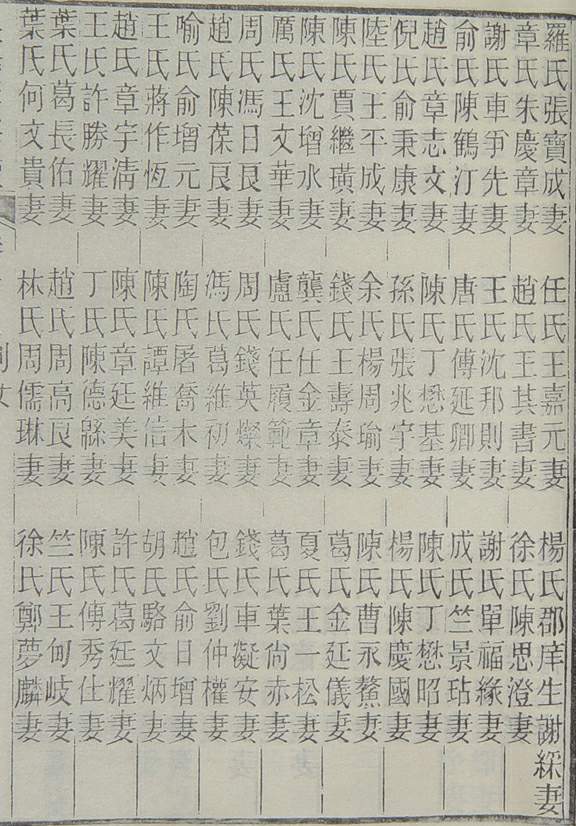 羅氏張寶成妻 任氏王嘉元妻 楊氏郡庠生謝綵妻
章氏朱慶章妻 趙氏王其書妻 徐氏陳思澄妻
謝氏車爭先妻 王氏沈邦則妻 謝氏單福緣妻
俞氏陳鶴汀妻 唐氏傅延卿妻 成氏竺景玷妻
趙氏章志文妻 陳氏丁懋基妻 陳氏丁懋昭妻
倪氏俞秉康妻 孫氏張兆宇妻 楊氏陳慶國妻
陸氏王平成妻 余氏楊周瑜妻 陳氏曹永鰲妻
陳氏賈繼璜妻 錢氏王壽泰妻 葛氏金廷儀妻
陳氏沈增水妻 龔氏任金章妻 夏氏王一松妻
厲氏王文華妻 盧氏任履範妻 葛氏葉尙赤妻
周氏馮日良妻 周氏錢英燦妻 錢氏車凝安妻
趙氏陳葆良妻 馮氏葛維初妻 包氏劉仲權妻
喻氏俞增元妻 陶氏屠喬木妻 趙氏俞日增妻
王氏蔣作恆妻 陳氏譚維信妻 胡氏駱文炳妻
趙氏章宇淸妻 陳氏章廷美妻 許氏葛廷耀妻
王氏許勝耀妻 丁氏陳德緜妻 陳氏傅秀仕妻
葉氏葛長佑妻 趙氏周高良妻 竺氏王甸岐妻
葉氏何文貴妻 林氏周儒琳妻 徐氏鄭夢麟妻